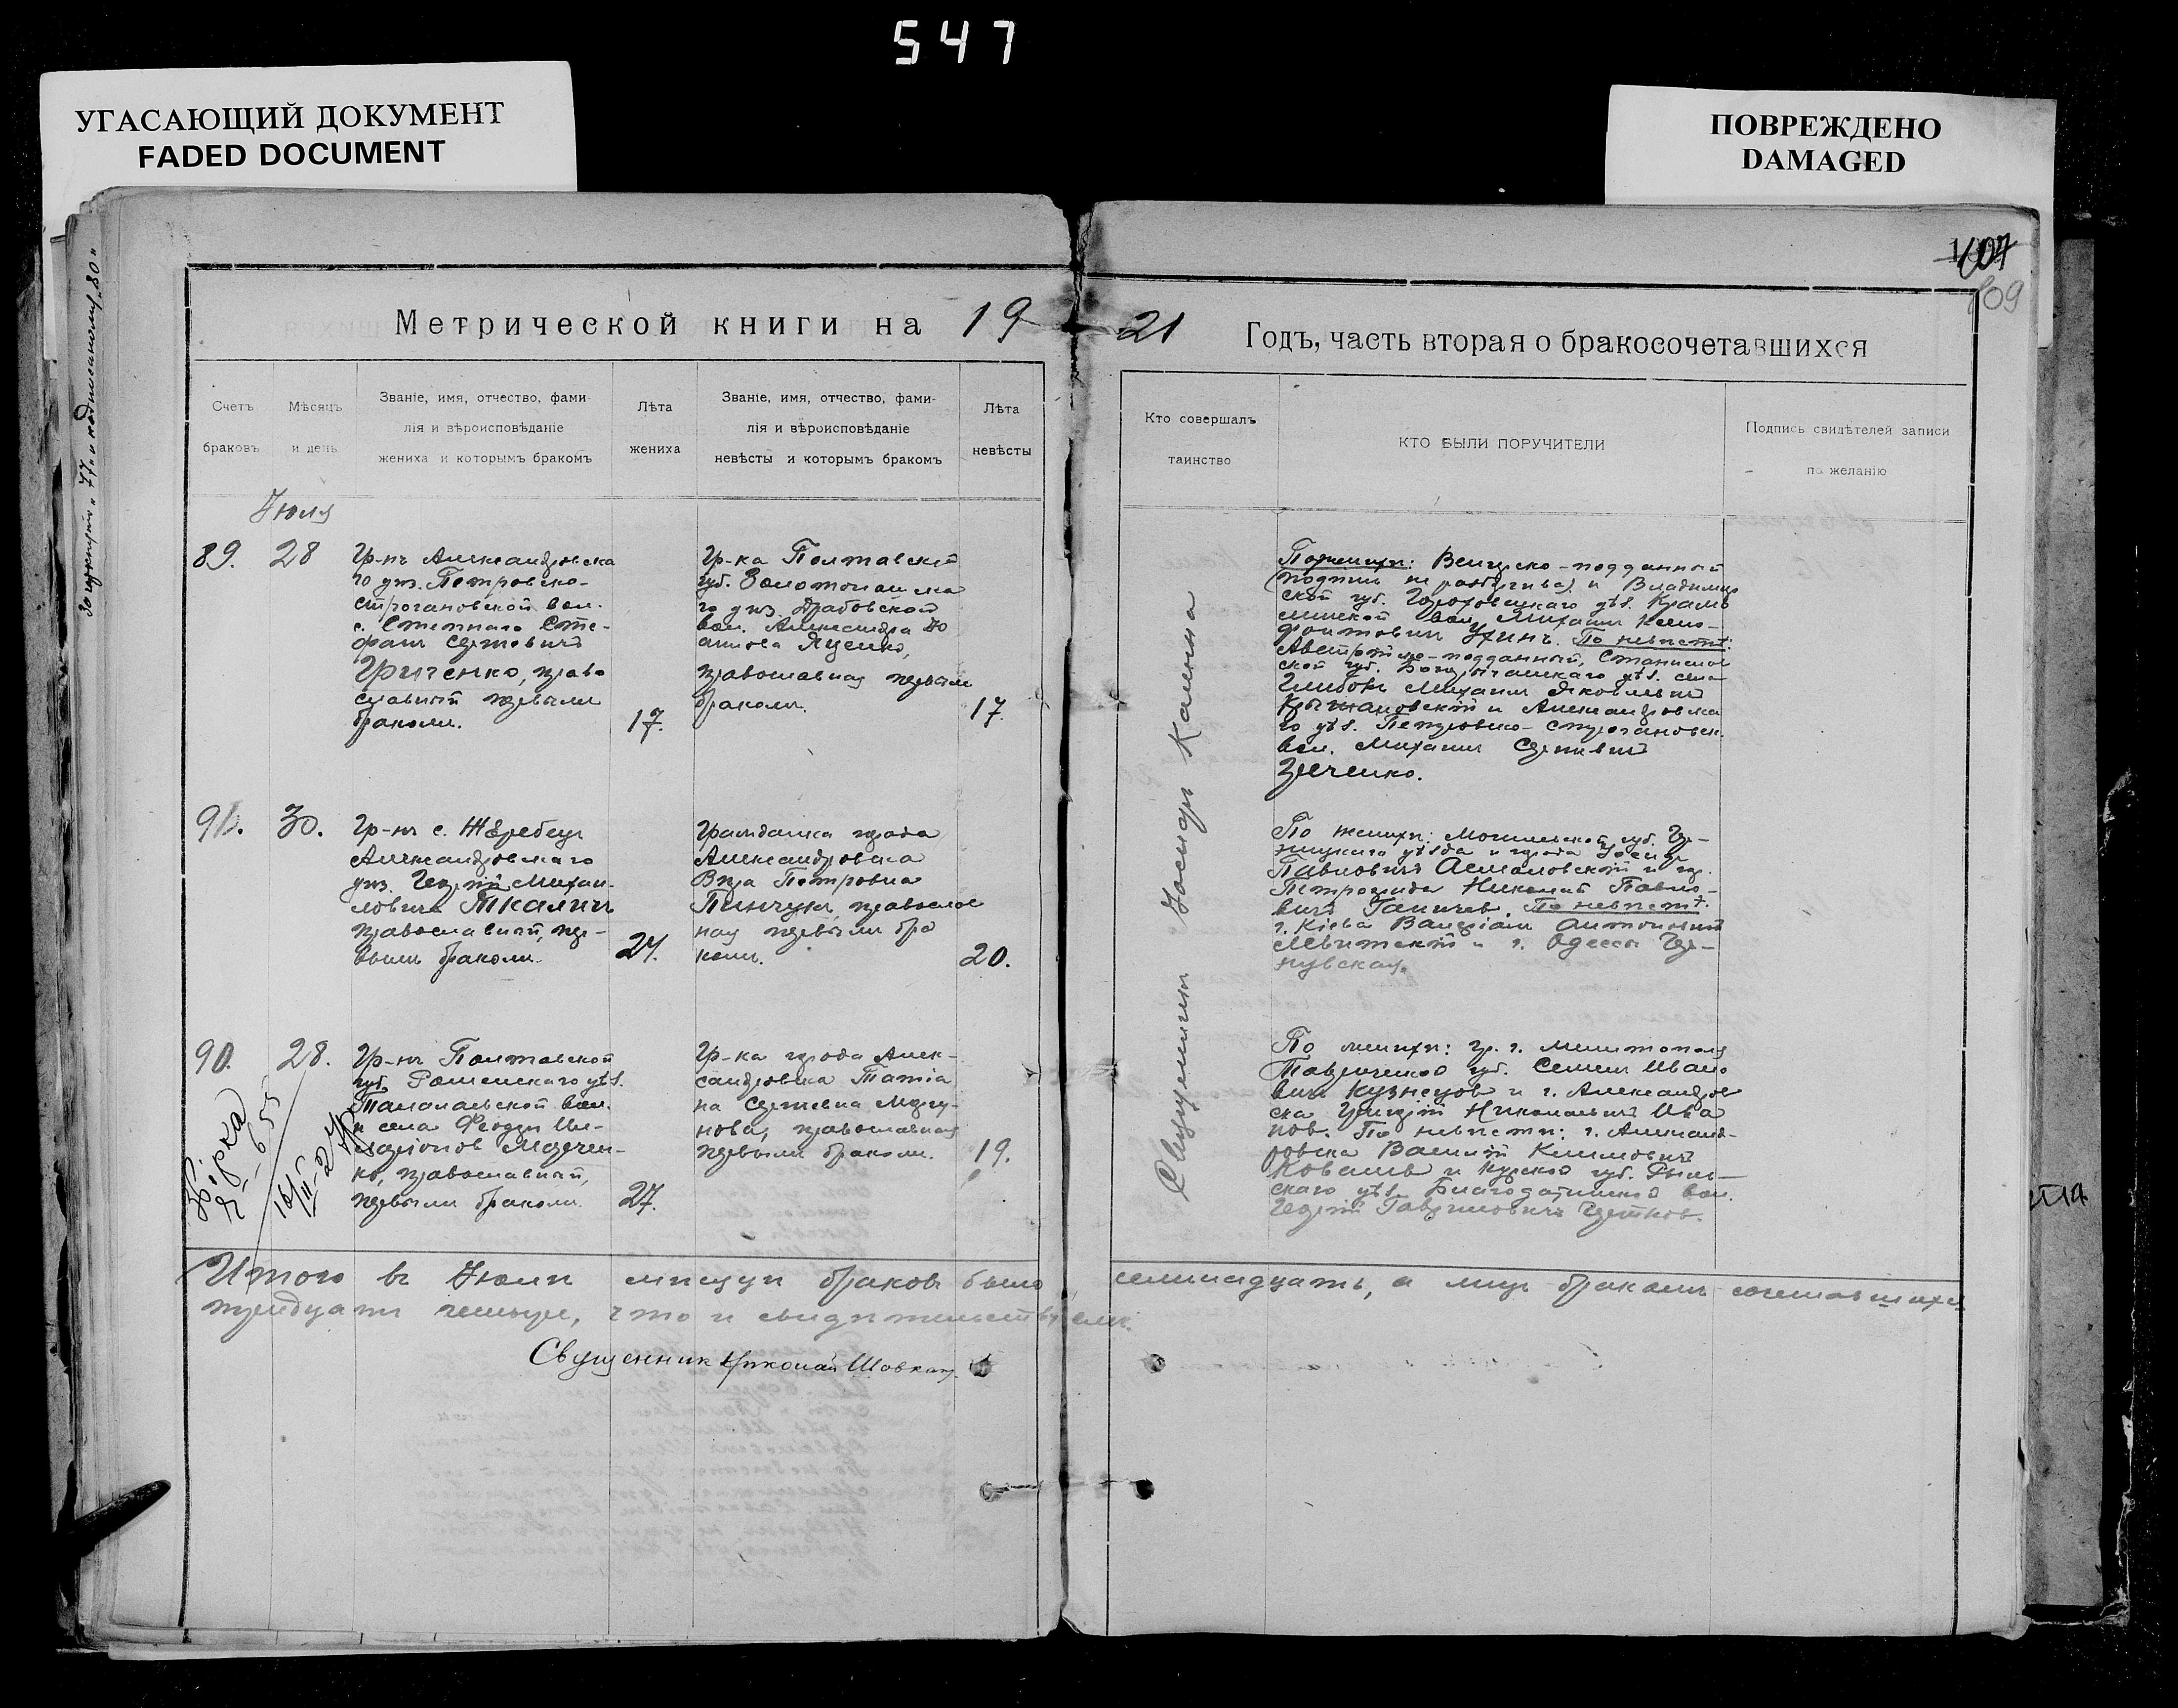 547
УГАСАЮЩИЙ ДОКУМЕНТ
FADED DOCUMENT
ПОВРЕЖДЕНО
DAMAGED
107
109
Метрической книги на 19
21 Годъ, часть вторая о бракосочетавшихся
Счетъ
браковъ
Мѣсяцъ
и день
Званіе, имя, отчество, фами-
лія и вѣроисповѣданіе
жениха и которымъ бракомъ
Лѣта
жениха
Званіе, имя, отчество, фами-
лія и вѣроисповѣданіе
невѣсты и которымъ бракомъ
Лѣта
невѣсты
Кто совершалъ
таинство
КТО БЫЛИ ПОРУЧИТЕЛИ
Подпись свидѣтелей записи
по желанію
Іюля
89. 28
Гр-нъ Александровска
го уѣз. Петровско-
строгановской вол.
с. Степнаго Сте-
фанъ Сергѣевичъ
Гриченко, право
славный первымъ
бракомъ. 17.
Гр-ка Полтавской
губ. Золотоношска
го уѣз. Драбовской
вол. Александра Ио
анова Яценко,
православная первымъ
бракомъ. 17.
По женихѣ: Венгерско-подданный
(подпись не разборчива) и Владимир
ской губ. Гороховецкаго уѣз.
вол. Михаилъ
Ухинъ. По невѣстѣ:
Австрійско-подданный, Станиславов
ской губ. Богородчанскаго уѣз. село
Глибокъ Михаилъ Яковлевичъ
Крыжановскій и Александровска
го уѣз. Петровско-строгановск.
вол. Михаилъ Сергѣевичъ
Гриченко.
91. 30.
Гр-нъ с. Жеребецъ
Александровскаго
уѣз. Георгій Михаи-
ловичъ Ткаличъ
православный, пер-
вымъ бракомъ. 24.
Гражданка города
Александровска
Вѣра Петровна
Пинчукъ, православ
ная первымъ бра
комъ. 20.
По женихѣ: Могилевской губ. Го-
рецкаго уѣзда и города Іосифъ
Павловичъ и гор.
Петрограда Николай Павло-
вичъ Ганичев. По невѣстѣ:
г. Кіева Валеріан Антоновичъ
и г. Одессы
90. 28.
Гр-нъ Полтавской
губ. Роменскаго уѣз.
Талалаевской вол.
и села Феодоръ Ил-
ларіонов Марчен-
ко, православный,
первымъ бракомъ. 27.
Гр-ка города Алек-
сандровска Татіа
на Сергѣевна Моргу-
нова, православная
первымъ бракомъ. 19.
По женихѣ: гр. г. Мелитополя
Таврической губ. Семенъ Ивано
вичъ Кузнецов и г. Александров
ска Григорій Николаевичъ Ива
нов. По невѣстѣ: г. Александ-
ровска Василій Климовичъ
Коваль и Курской губ. Рыль-
скаго уѣз. Благодатинской вол.
Георгій Гавриловичъ
Священникъ Іосифъ Калина
Итого въ Іюлѣ мѣсяцѣ браков было семнадцать, а лицъ бракомъ сочетавшихся
тридцать четыре, что и свидѣтельствуемъ.
Священник Николай